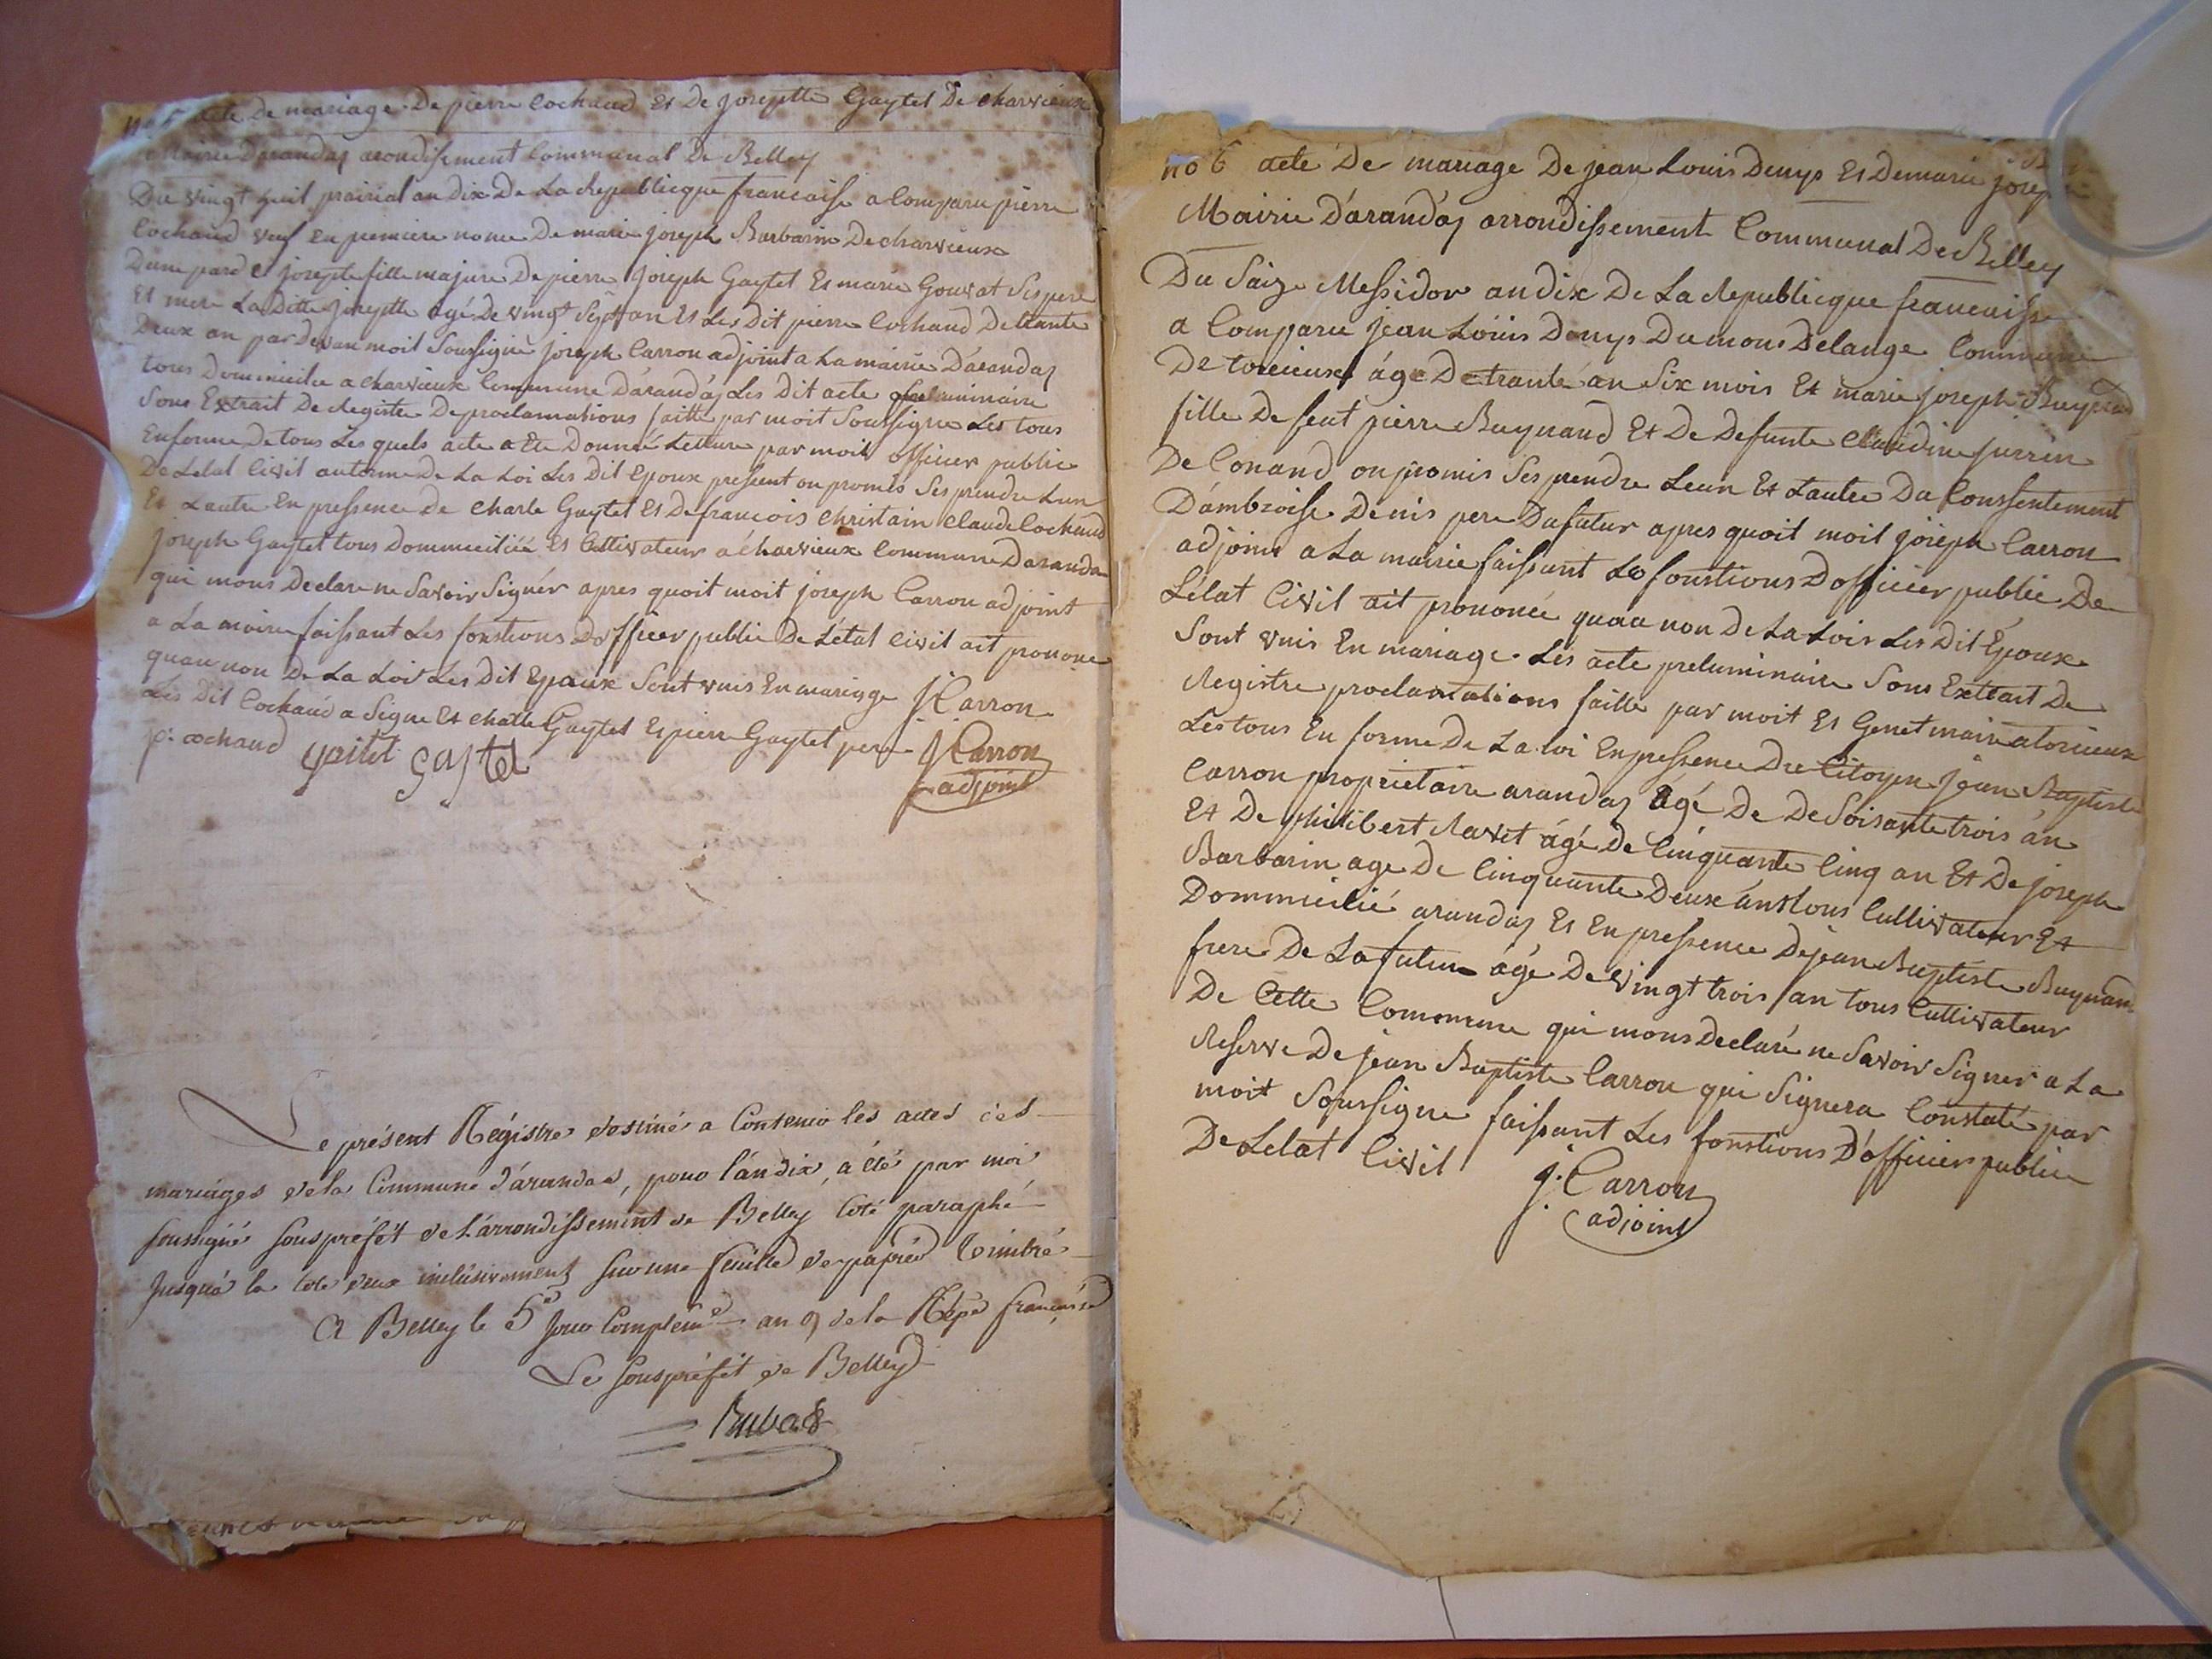 no 5 acte De mariage De pierre Cochaud Et De Joseptte Gaytet De charvieux
Mairie Darandas arondissement Communal De Belley
Du vingt huit prairial an dix De La Republicque francaise a Comparu pierre
Cochaud veuf En premiere nome De marie joseph Barbarin De charvieux
Dune pard Et josepte fille majure De pierre joseph Gaytet Et marie Gouvat Ses pere
Et mere La Ditte joseptte agé De vingt Sept an Et Les Dit pierre Cochaud De trante
Deux an par Devan moit Soussigné joseph Carron adjoint a La mairie D'arandas
tous Dommicilie a charvieux Commune D'arandas Les Dit acte preluminaire
Sous Extrait De Registe De proclamations faitte par moit Soussigne Les tous
En forme De tous Les quels acte a Ete Donné Letture par moit officier public
De Letat Civil au terme De La Loi Les Dit Epoux pressent on promis Ses prendre Lun
Et Lautre En pressence De charle Gaytet Et De francois christain Claude Cochaud
joseph Gaytet tous Dommiciliéé Et Cultivateur a charvieux Commune Daranda
qui mons Declare ne Savoir Signér apres quoit moit joseph Carron adjoint
a La mairie faissant Les fonstions D'officer public De L'état Civil ait prononce
quau non De La Loi Les Dit Epoux Sont unis En mariage J Carron
Les Dit Cochaud a Signe Et charle Gaytet Et pierre Gaytet pere J. Carron
p. cochaud gaitet Gaytet adjoint
Le présent Régistre destiné a Contenir les actes des
mariages de la Commune d'arandas, pour l'an dix, a été par moi
soussigné souspréfét de l'arrondissement de Belley Coté paraphé
jusqu'à la Cote deux inclusivement sur une feuille de papier timbré
A Belley le 5e jour Complemre an 9 de la Répe francaise
Le souspréfét de Belley
no 6 acte De mariage De jean Louis Denys Et De marie joseph
Mairie D'arandas arrondissement Communal De Belley
Du Saize Messidor an dix De La Republicque francaisse
a Comparu jean Loüis Denys Du mons Delange Commune
De torcieux agé De trante an Six mois Et marie joseph Buynand
fille De feut pierre Buynand Et De Defunte Claudine jurrin
De Conand on promis Ses prendre Leun Et Lautre Du Conssentement
D'ambroise Denis pere Du futur apres quoit moit joseph Carron
adjoint a La mairie faissant Les fonstions D'officier public De
L'état Civil ait prononcé quau non De La Loix Les Dit Epoux
Sont unis En mariage Les acte preluminaire Sous Extrait De
Registre proclamations faitte par moit Et Genet maire a torcieux
Les tous En forme De La Loi En pressence Du Citoyen jean Baptiste
Carron proprietaire arandas agé De De Soisante trois an
Et De philibert Ravet agé De Cinquante Cinq an Et De joseph
Barbarin age De Cinquante Deux an tous Cultivateur Et
Dommicilié arandas Et En pressence De jean Baptiste Buynand
frere De La future agé De vingt trois an tous Cultivateur
De Cette Commune qui mons Declaré ne Savoir Signer a La
Reserve De jean Baptiste Carron qui Signera Constaté par
moit Soussigne faissant Les fonstions D'officier public
De Letat Civil J. Carron
adjoint